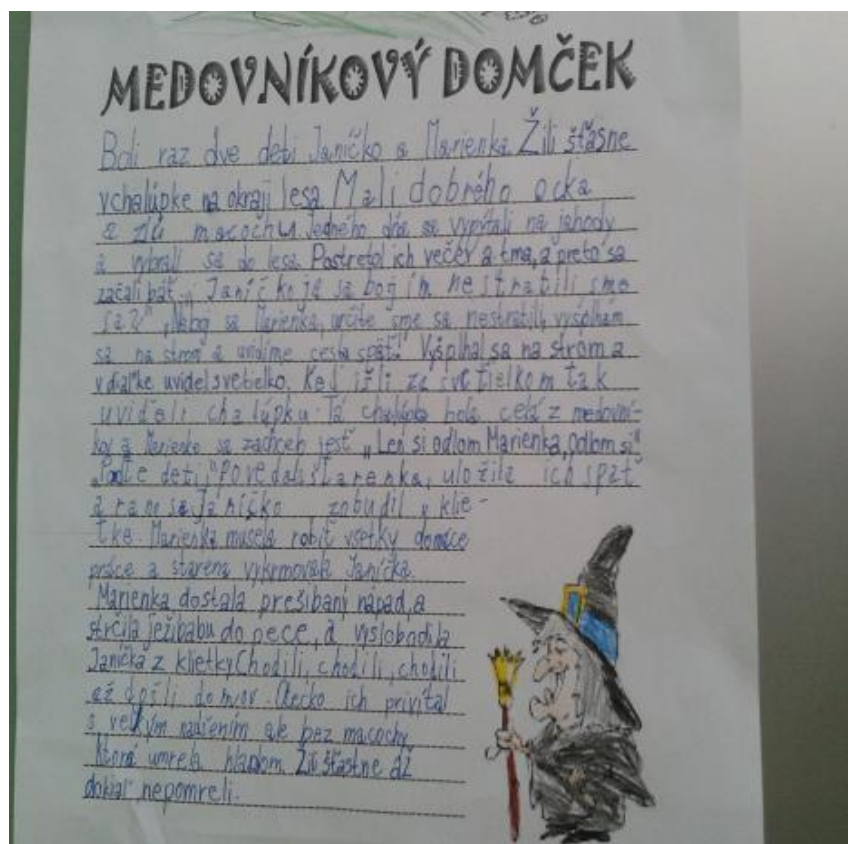 MEDOVNÍKOVÝ DOMČEK
Boli raz dve deti Janíčko a Marienka. Žili šťasne
v chalúpke na okraji lesa. Mali dobrého ocka
a zlú macochu. Jedného dňa sa vypýtali na jahody
a vybrali sa do lesa. Postretol ich večer a tma, a preto sa
začali báť. „Janíčko ja sa bojím nestratili sme
sa?" „Neboj sa Marienka, určite sme sa nestratili, vyšplhám
sa na strom a uvidíme cestu späť!" Vyšplhal sa na strom a
v diaľke uvidel svetielko. Keď išli za svetielkom tak
uvideli chalúpku. Tá chalúpka bola celá z medovní-
kov a Marienke sa zachcelo jesť „Len si odlom Marienka, odlom si"
„Poďte deti," povedala starenka, uložila ich spať
a ráno sa Janíčko zobudil v klie-
tke. Marienka musela robiť všetky domáce
práce a starena vykrmovala Janíčka.
Marienka dostala prešibaný nápad, a
strčila ježibabu do pece, a vyslobodila
Janíčka z klietky. Chodili, chodili, chodili
až došli domov. Otecko ich privítal
s veľkým nadšením ale bez macochy
ktorá umrela hladom. Žili šťastne až
dokiaľ nepomreli.